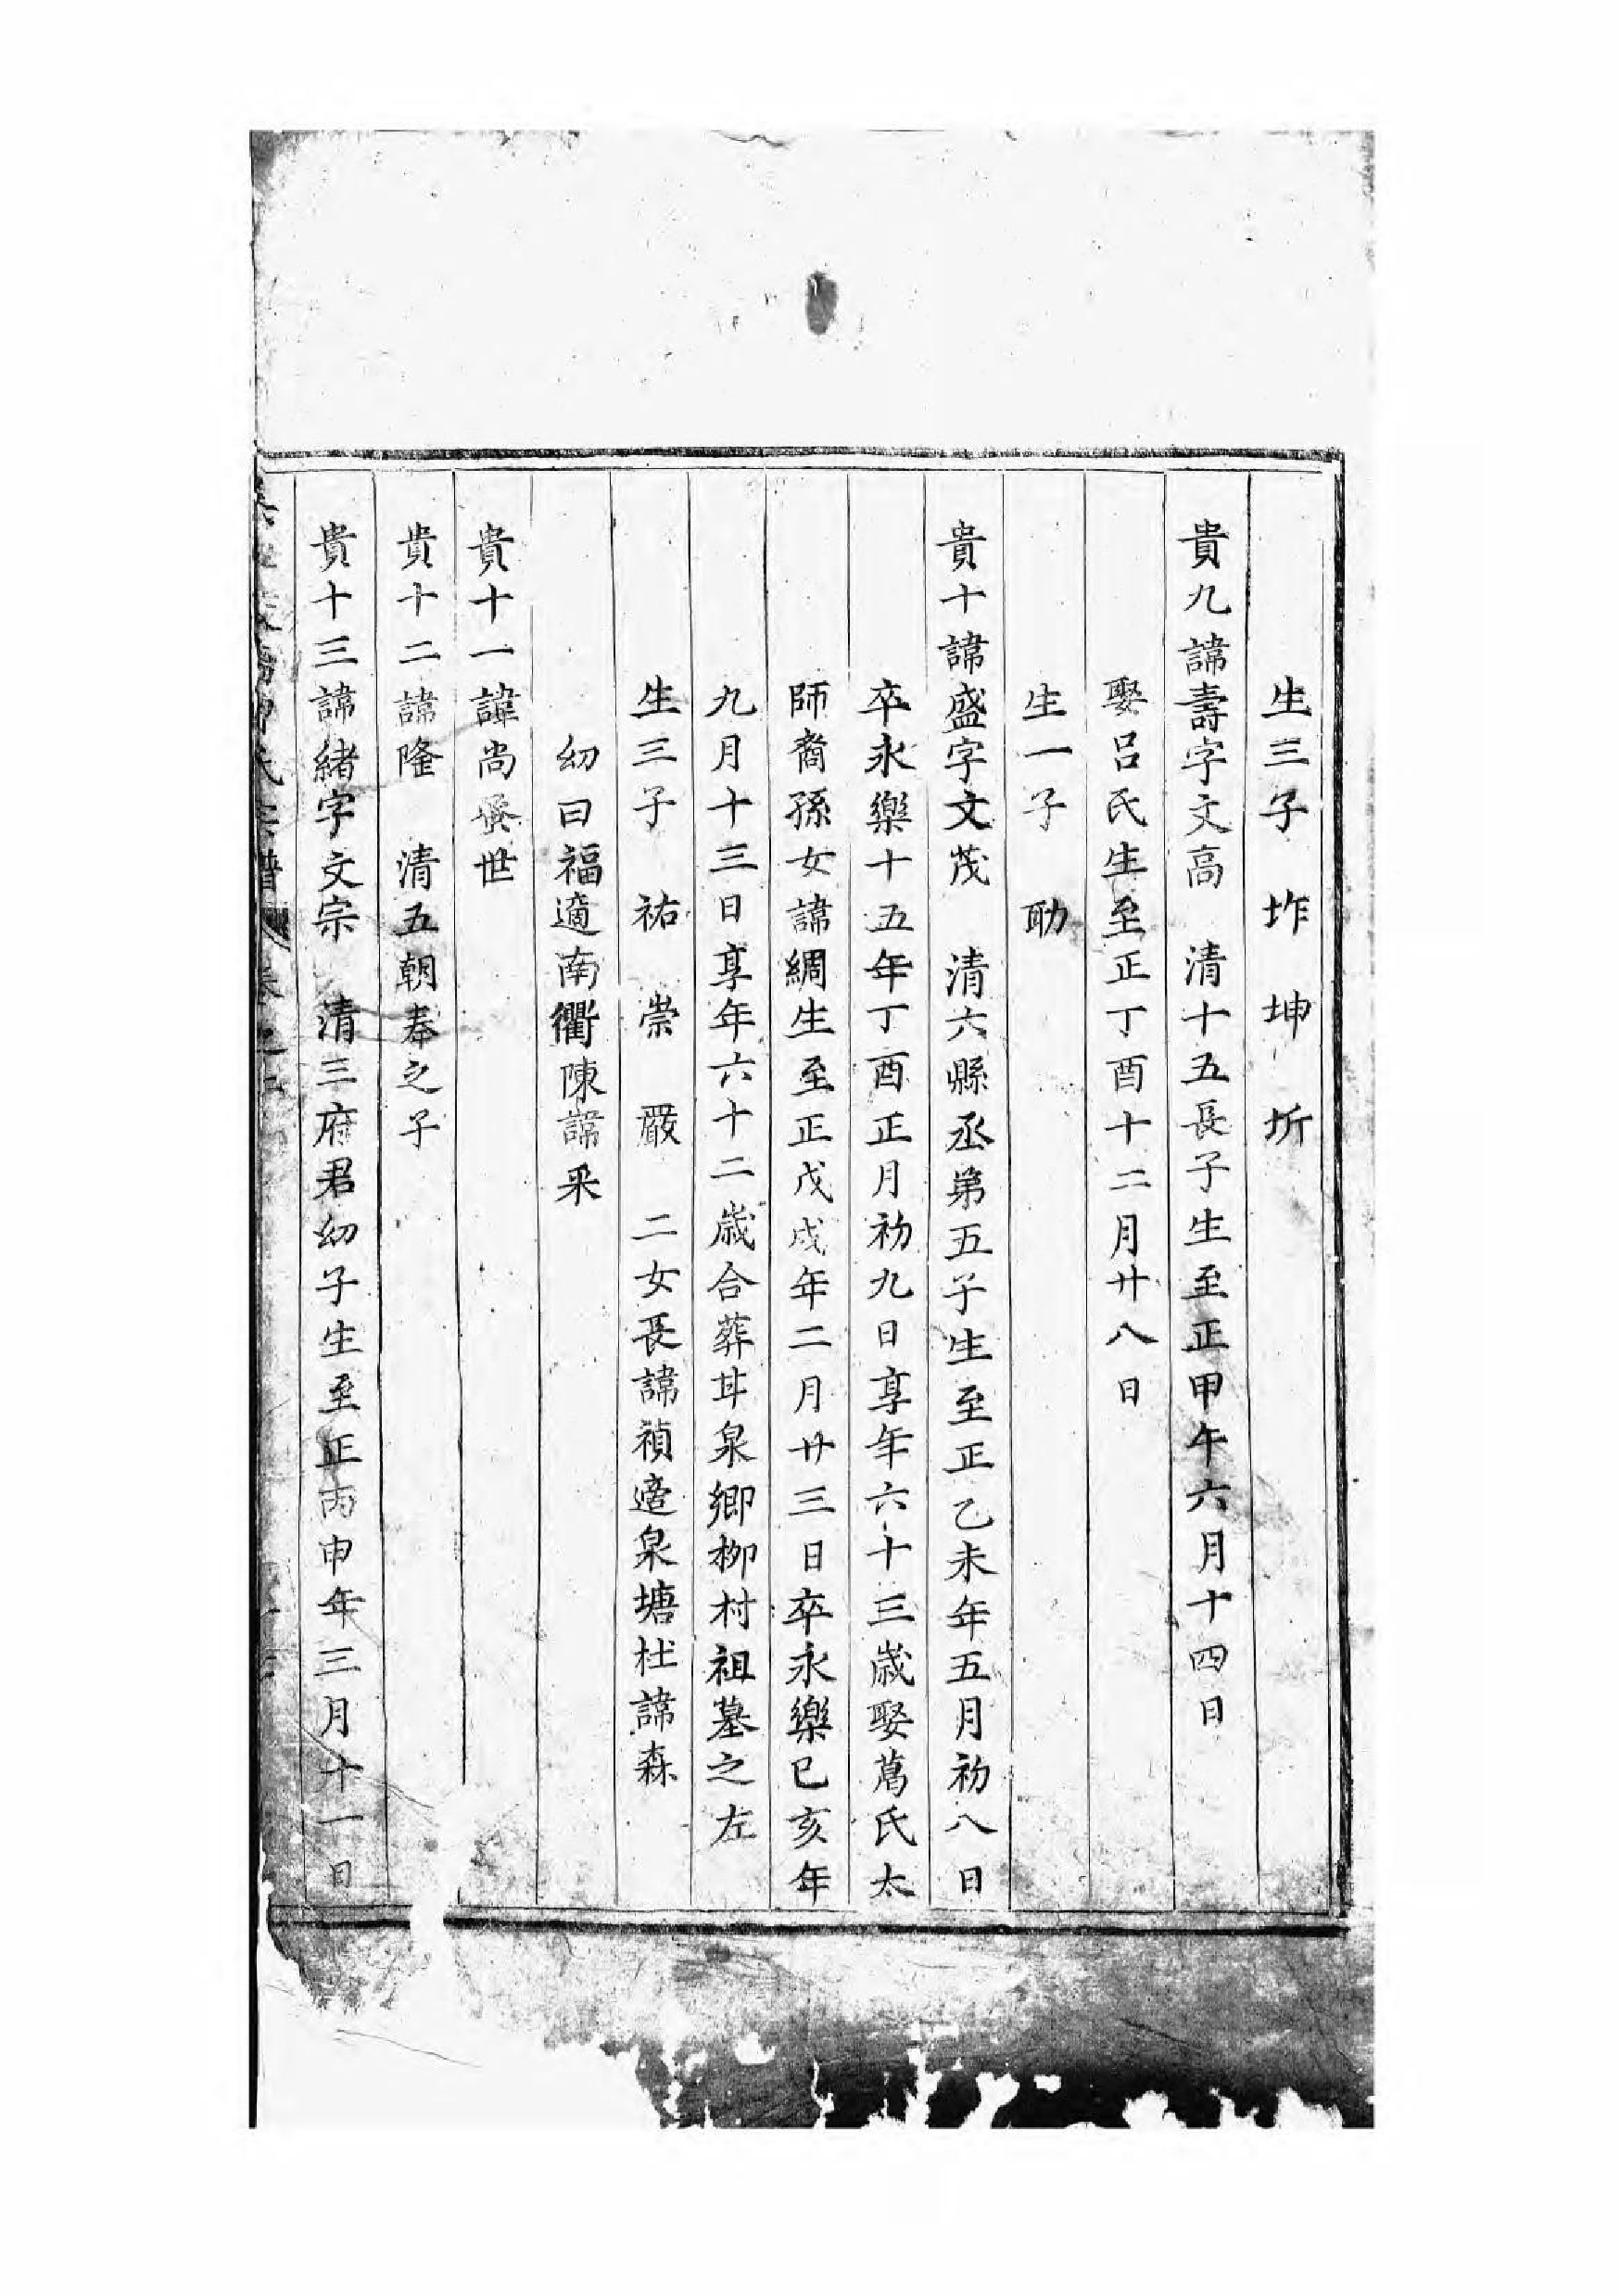 生三子 坤 圻
貴九諱壽字文高 清十五長子生至正甲午六月十四日
娶呂氏生至正丁酉十二月廿八日
生一子 助
貴十諱盛字文茂 清六縣丞第五子生至正乙未年五月初八日
卒永樂十五年丁酉正月初九日享年六十三歲娶萬氏太
師裔孫女諱綢生至正戊戌年二月廿三日卒永樂己亥年
九月十三日享年六十二歲合葬甘泉鄉柳村祖墓之左
生三子 祐 崇 嚴 二女長諱禎適泉塘杜諱森
幼曰福適南衢陳諱采
貴十一諱尚蚤世
貴十二諱隆 清五朝奉之子
貴十三諱緒字文宗 清三府君幼子生至正丙申年三月十一日